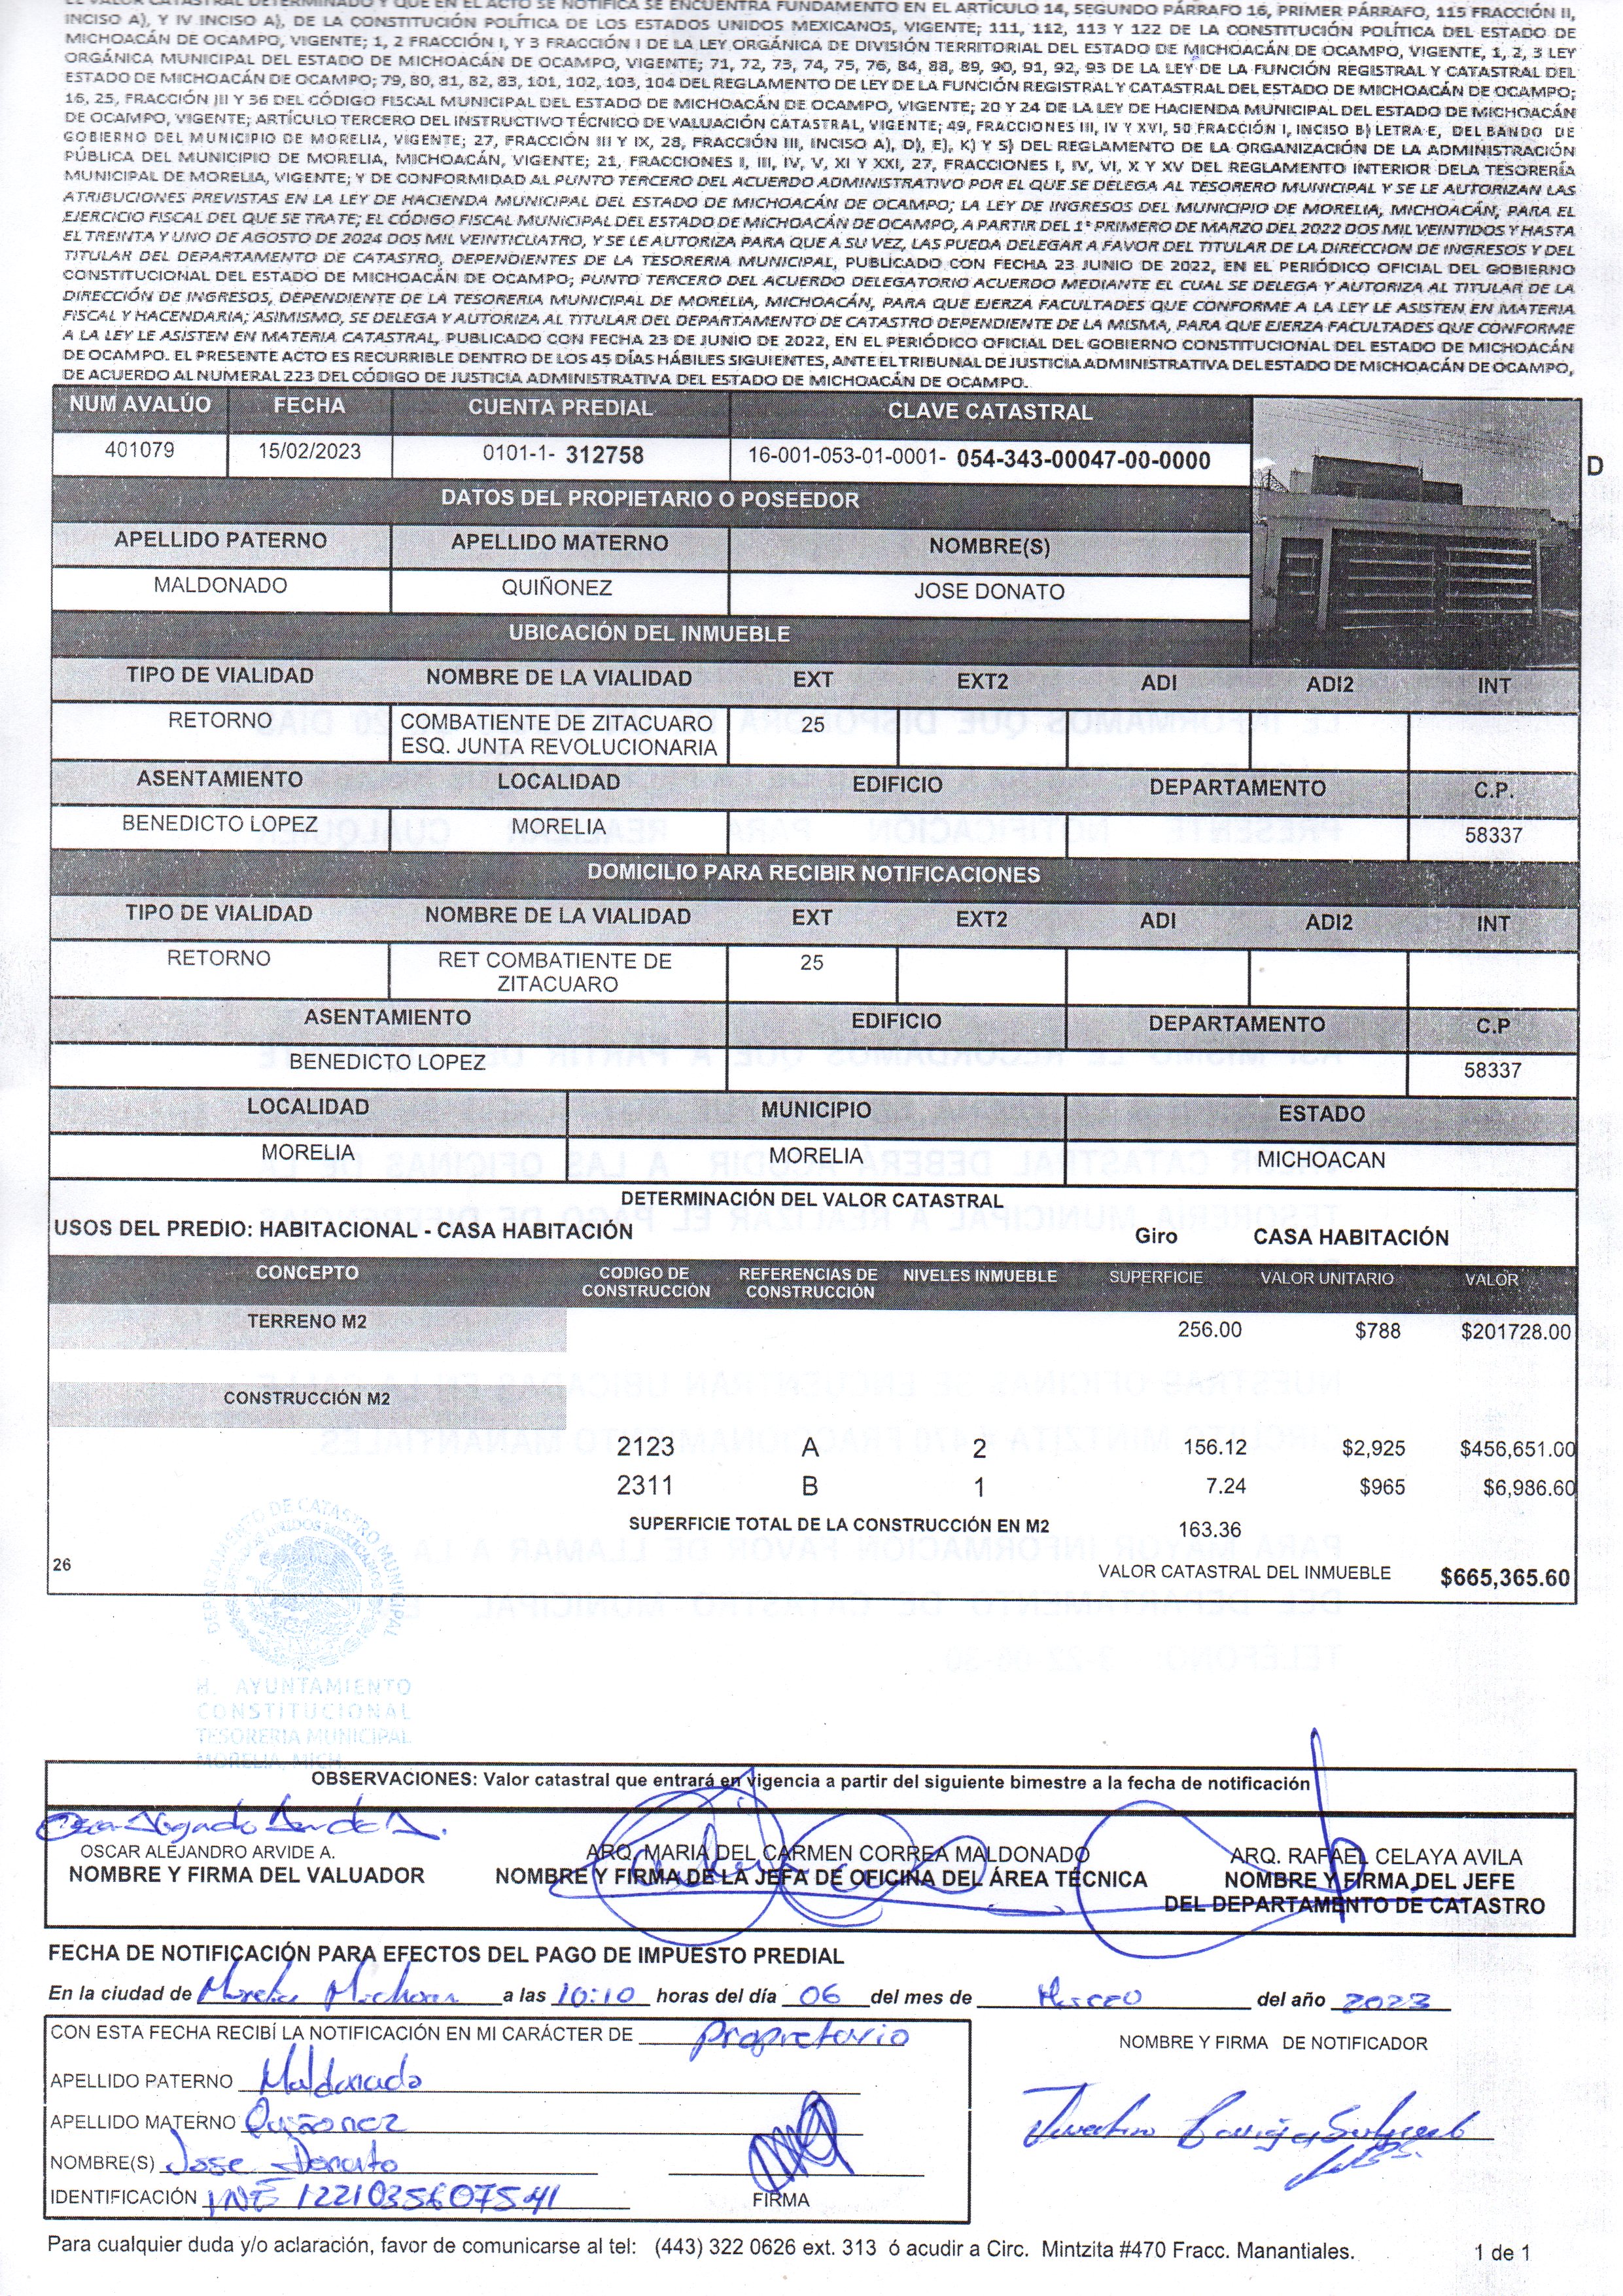 EL VALOR CATASTRAL DETERMINADO Y QUE EN EL ACTO SE NOTIFICA SE ENCUENTRA FUNDAMENTO EN EL ARTÍCULO 14, SEGUNDO PÁRRAFO 16, PRIMER PÁRRAFO, 115 FRACCIÓN II,
INCISO A), Y IV INCISO A), DE LA CONSTITUCIÓN POLÍTICA DE LOS ESTADOS UNIDOS MEXICANOS, VIGENTE; 111, 112, 113 Y 122 DE LA CONSTITUCIÓN POLÍTICA DEL ESTADO DE
MICHOACÁN DE OCAMPO, VIGENTE; 1, 2 FRACCIÓN I, Y 3 FRACCIÓN I DE LA LEY ORGÁNICA DE DIVISIÓN TERRITORIAL DEL ESTADO DE MICHOACÁN DE OCAMPO, VIGENTE, 1, 2, 3 LEY
ORGÁNICA MUNICIPAL DEL ESTADO DE MICHOACÁN DE OCAMPO, VIGENTE; 71, 72, 73, 74, 75, 76, 84, 88, 89, 90, 91, 92, 93 DE LA LEY DE LA FUNCIÓN REGISTRAL Y CATASTRAL DEL
ESTADO DE MICHOACÁN DE OCAMPO; 79, 80, 81, 82, 83, 101, 102, 103, 104 DEL REGLAMENTO DE LEY DE LA FUNCIÓN REGISTRAL Y CATASTRAL DEL ESTADO DE MICHOACÁN DE OCAMPO;
16, 25, FRACCIÓN III Y 36 DEL CÓDIGO FISCAL MUNICIPAL DEL ESTADO DE MICHOACÁN DE OCAMPO, VIGENTE; 20 Y 24 DE LA LEY DE HACIENDA MUNICIPAL DEL ESTADO DE MICHOACÁN
DE OCAMPO, VIGENTE; ARTÍCULO TERCERO DEL INSTRUCTIVO TÉCNICO DE VALUACIÓN CATASTRAL, VIGENTE; 49, FRACCIONES III, IV Y XVI, 50 FRACCIÓN I, INCISO B) LETRA E, DEL BANDO DE
GOBIERNO DEL MUNICIPIO DE MORELIA, VIGENTE; 27, FRACCIÓN III Y IX, 28, FRACCIÓN III, INCISO A), D), E), K) Y S) DEL REGLAMENTO DE LA ORGANIZACIÓN DE LA ADMINISTRACIÓN
PÚBLICA DEL MUNICIPIO DE MORELIA, MICHOACÁN, VIGENTE; 21, FRACCIONES I, III, IV, V, XI Y XXI, 27, FRACCIONES I, IV, VI, X Y XV DEL REGLAMENTO INTERIOR DELA TESORERÍA
MUNICIPAL DE MORELIA, VIGENTE; Y DE CONFORMIDAD AL PUNTO TERCERO DEL ACUERDO ADMINISTRATIVO POR EL QUE SE DELEGA AL TESORERO MUNICIPAL Y SE LE AUTORIZAN LAS
ATRIBUCIONES PREVISTAS EN LA LEY DE HACIENDA MUNICIPAL DEL ESTADO DE MICHOACÁN DE OCAMPO; LA LEY DE INGRESOS DEL MUNICIPIO DE MORELIA, MICHOACÁN, PARA EL
EJERCICIO FISCAL DEL QUE SE TRATE; EL CÓDIGO FISCAL MUNICIPAL DEL ESTADO DE MICHOACÁN DE OCAMPO, A PARTIR DEL 1° PRIMERO DE MARZO DEL 2022 DOS MIL VEINTIDOS Y HASTA
EL TREINTA Y UNO DE AGOSTO DE 2024 DOS MIL VEINTICUATRO, Y SE LE AUTORIZA PARA QUE A SU VEZ, LAS PUEDA DELEGAR A FAVOR DEL TITULAR DE LA DIRECCION DE INGRESOS Y DEL
TITULAR DEL DEPARTAMENTO DE CATASTRO, DEPENDIENTES DE LA TESORERIA MUNICIPAL, PUBLICADO CON FECHA 23 JUNIO DE 2022, EN EL PERIÓDICO OFICIAL DEL GOBIERNO
CONSTITUCIONAL DEL ESTADO DE MICHOACÁN DE OCAMPO; PUNTO TERCERO DEL ACUERDO DELEGATORIO ACUERDO MEDIANTE EL CUAL SE DELEGA Y AUTORIZA AL TITULAR DE LA
DIRECCIÓN DE INGRESOS, DEPENDIENTE DE LA TESORERIA MUNICIPAL DE MORELIA, MICHOACÁN, PARA QUE EJERZA FACULTADES QUE CONFORME A LA LEY LE ASISTEN EN MATERIA
FISCAL Y HACENDARIA; ASIMISMO, SE DELEGA Y AUTORIZA AL TITULAR DEL DEPARTAMENTO DE CATASTRO DEPENDIENTE DE LA MISMA, PARA QUE EJERZA FACULTADES QUE CONFORME
A LA LEY LE ASISTEN EN MATERIA CATASTRAL, PUBLICADO CON FECHA 23 DE JUNIO DE 2022, EN EL PERIÓDICO OFICIAL DEL GOBIERNO CONSTITUCIONAL DEL ESTADO DE MICHOACÁN
DE OCAMPO. EL PRESENTE ACTO ES RECURRIBLE DENTRO DE LOS 45 DÍAS HÁBILES SIGUIENTES, ANTE EL TRIBUNAL DE JUSTICIA ADMINISTRATIVA DEL ESTADO DE MICHOACÁN DE OCAMPO,
DE ACUERDO AL NUMERAL 223 DEL CÓDIGO DE JUSTICIA ADMINISTRATIVA DEL ESTADO DE MICHOACÁN DE OCAMPO.
NUM AVALÚO FECHA CUENTA PREDIAL CLAVE CATASTRAL
401079 15/02/2023 0101-1- 312758 16-001-053-01-0001- 054-343-00047-00-0000
D
DATOS DEL PROPIETARIO O POSEEDOR
APELLIDO PATERNO APELLIDO MATERNO NOMBRE(S)
MALDONADO QUIÑONEZ JOSE DONATO
UBICACIÓN DEL INMUEBLE
TIPO DE VIALIDAD NOMBRE DE LA VIALIDAD EXT EXT2 ADI ADI2 INT
RETORNO COMBATIENTE DE ZITACUARO 25
ESQ. JUNTA REVOLUCIONARIA
ASENTAMIENTO LOCALIDAD EDIFICIO DEPARTAMENTO C.P.
BENEDICTO LOPEZ MORELIA 58337
DOMICILIO PARA RECIBIR NOTIFICACIONES
TIPO DE VIALIDAD NOMBRE DE LA VIALIDAD EXT EXT2 ADI ADI2 INT
RETORNO RET COMBATIENTE DE 25
ZITACUARO
ASENTAMIENTO EDIFICIO DEPARTAMENTO C.P
BENEDICTO LOPEZ 58337
LOCALIDAD MUNICIPIO ESTADO
MORELIA MORELIA MICHOACAN
DETERMINACIÓN DEL VALOR CATASTRAL
USOS DEL PREDIO: HABITACIONAL - CASA HABITACIÓN Giro CASA HABITACIÓN
CONCEPTO CODIGO DE CONSTRUCCIÓN REFERENCIAS DE CONSTRUCCIÓN NIVELES INMUEBLE SUPERFICIE VALOR UNITARIO VALOR
TERRENO M2 256.00 $788 $201728.00
CONSTRUCCIÓN M2
2123 A 2 156.12 $2,925 $456,651.00
2311 B 1 7.24 $965 $6,986.60
SUPERFICIE TOTAL DE LA CONSTRUCCIÓN EN M2 163.36
26 VALOR CATASTRAL DEL INMUEBLE $665,365.60
DEPARTAMENTO DE CATASTRO MUNICIPAL
ESTADOS UNIDOS MEXICANOS
H. AYUNTAMIENTO
CONSTITUCIONAL
TESORERIA MUNICIPAL
MORELIA, MICH
OBSERVACIONES: Valor catastral que entrará en vigencia a partir del siguiente bimestre a la fecha de notificación
OSCAR ALEJANDRO ARVIDE A. ARQ. MARIA DEL CARMEN CORREA MALDONADO ARQ. RAFAEL CELAYA AVILA
NOMBRE Y FIRMA DEL VALUADOR NOMBRE Y FIRMA DE LA JEFA DE OFICINA DEL ÁREA TÉCNICA NOMBRE Y FIRMA DEL JEFE
DEL DEPARTAMENTO DE CATASTRO
FECHA DE NOTIFICACIÓN PARA EFECTOS DEL PAGO DE IMPUESTO PREDIAL
En la ciudad de Morelia Michoacan a las 10:10 horas del día 06 del mes de Marzo del año 2023
CON ESTA FECHA RECIBÍ LA NOTIFICACIÓN EN MI CARÁCTER DE propietario
NOMBRE Y FIRMA DE NOTIFICADOR
APELLIDO PATERNO Maldonado
APELLIDO MATERNO Quiñonez
NOMBRE(S) Jose Donato
IDENTIFICACIÓN INE 1221035607541
FIRMA
Para cualquier duda y/o aclaración, favor de comunicarse al tel: (443) 322 0626 ext. 313 ó acudir a Circ. Mintzita #470 Fracc. Manantiales. 1 de 1